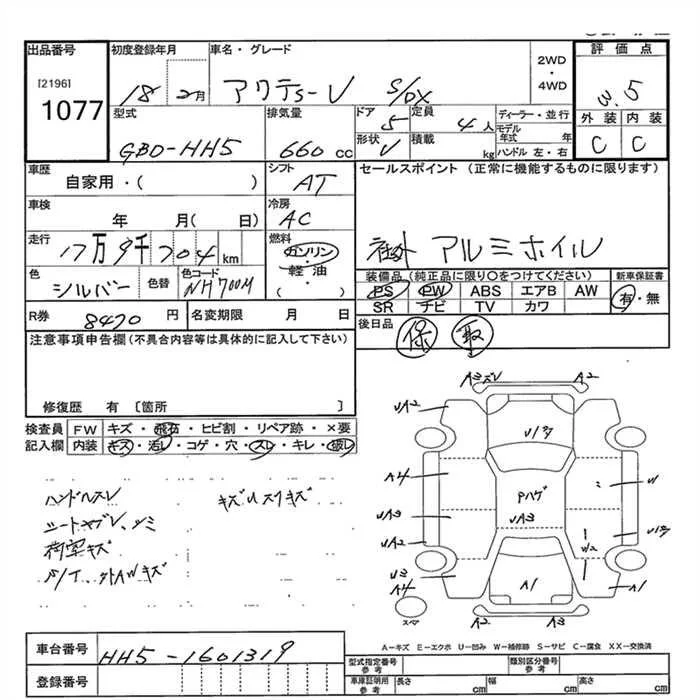 出品番号 初度登録年月 車名・グレード 2WD・4WD 評価点
[2196]
1077
18 2月 アクティ-V S/DX 3.5
型式 排気量 ドア 定員 ディーラー・並行 外装 内装
GBD-HH5 660cc 5 4人 モデル年式 年 C C
形状 V 積載 kg ハンドル 左・右
車歴 自家用・( ) シフト AT セールスポイント (正常に機能するものに限ります)
車検 年 月( 日) 冷房 AC
社外 アルミホイル
走行 17万9千704km 燃料 ガソリン・軽油・( )
色 シルバー 色替 色コード NH700M
装備品 (純正品に限り○をつけてください) 新車保証書
PS PW ABS エアB AW 有・無
SR ナビ TV カワ
R券 8470円 名変期限 月 日 後日品 保 取
注意事項申告欄(不具合内容等は具体的に記入して下さい)
修復歴 有 [箇所 ]
検査員記入欄 FW キズ・飛石・ヒビ割・リペア跡・×要
内装 キズ・汚レ・コゲ・穴・スレ・キレ・破レ
ハンドルスレ
荷室キズ
A3 A2
UA2 U
A4 Pハゲ U
UA3 UA3
UA2
U3 A4 A1 A1
スペア A2 A3
A-キズ E-エクボ U-凹み W-補修跡 S-サビ C-腐食 XX-交換済
車台番号 HH5-1601319
登録番号
型式指定番号 参考 類別区分番号 参考
車庫証明用 参考 長さ cm 幅 cm 高さ cm